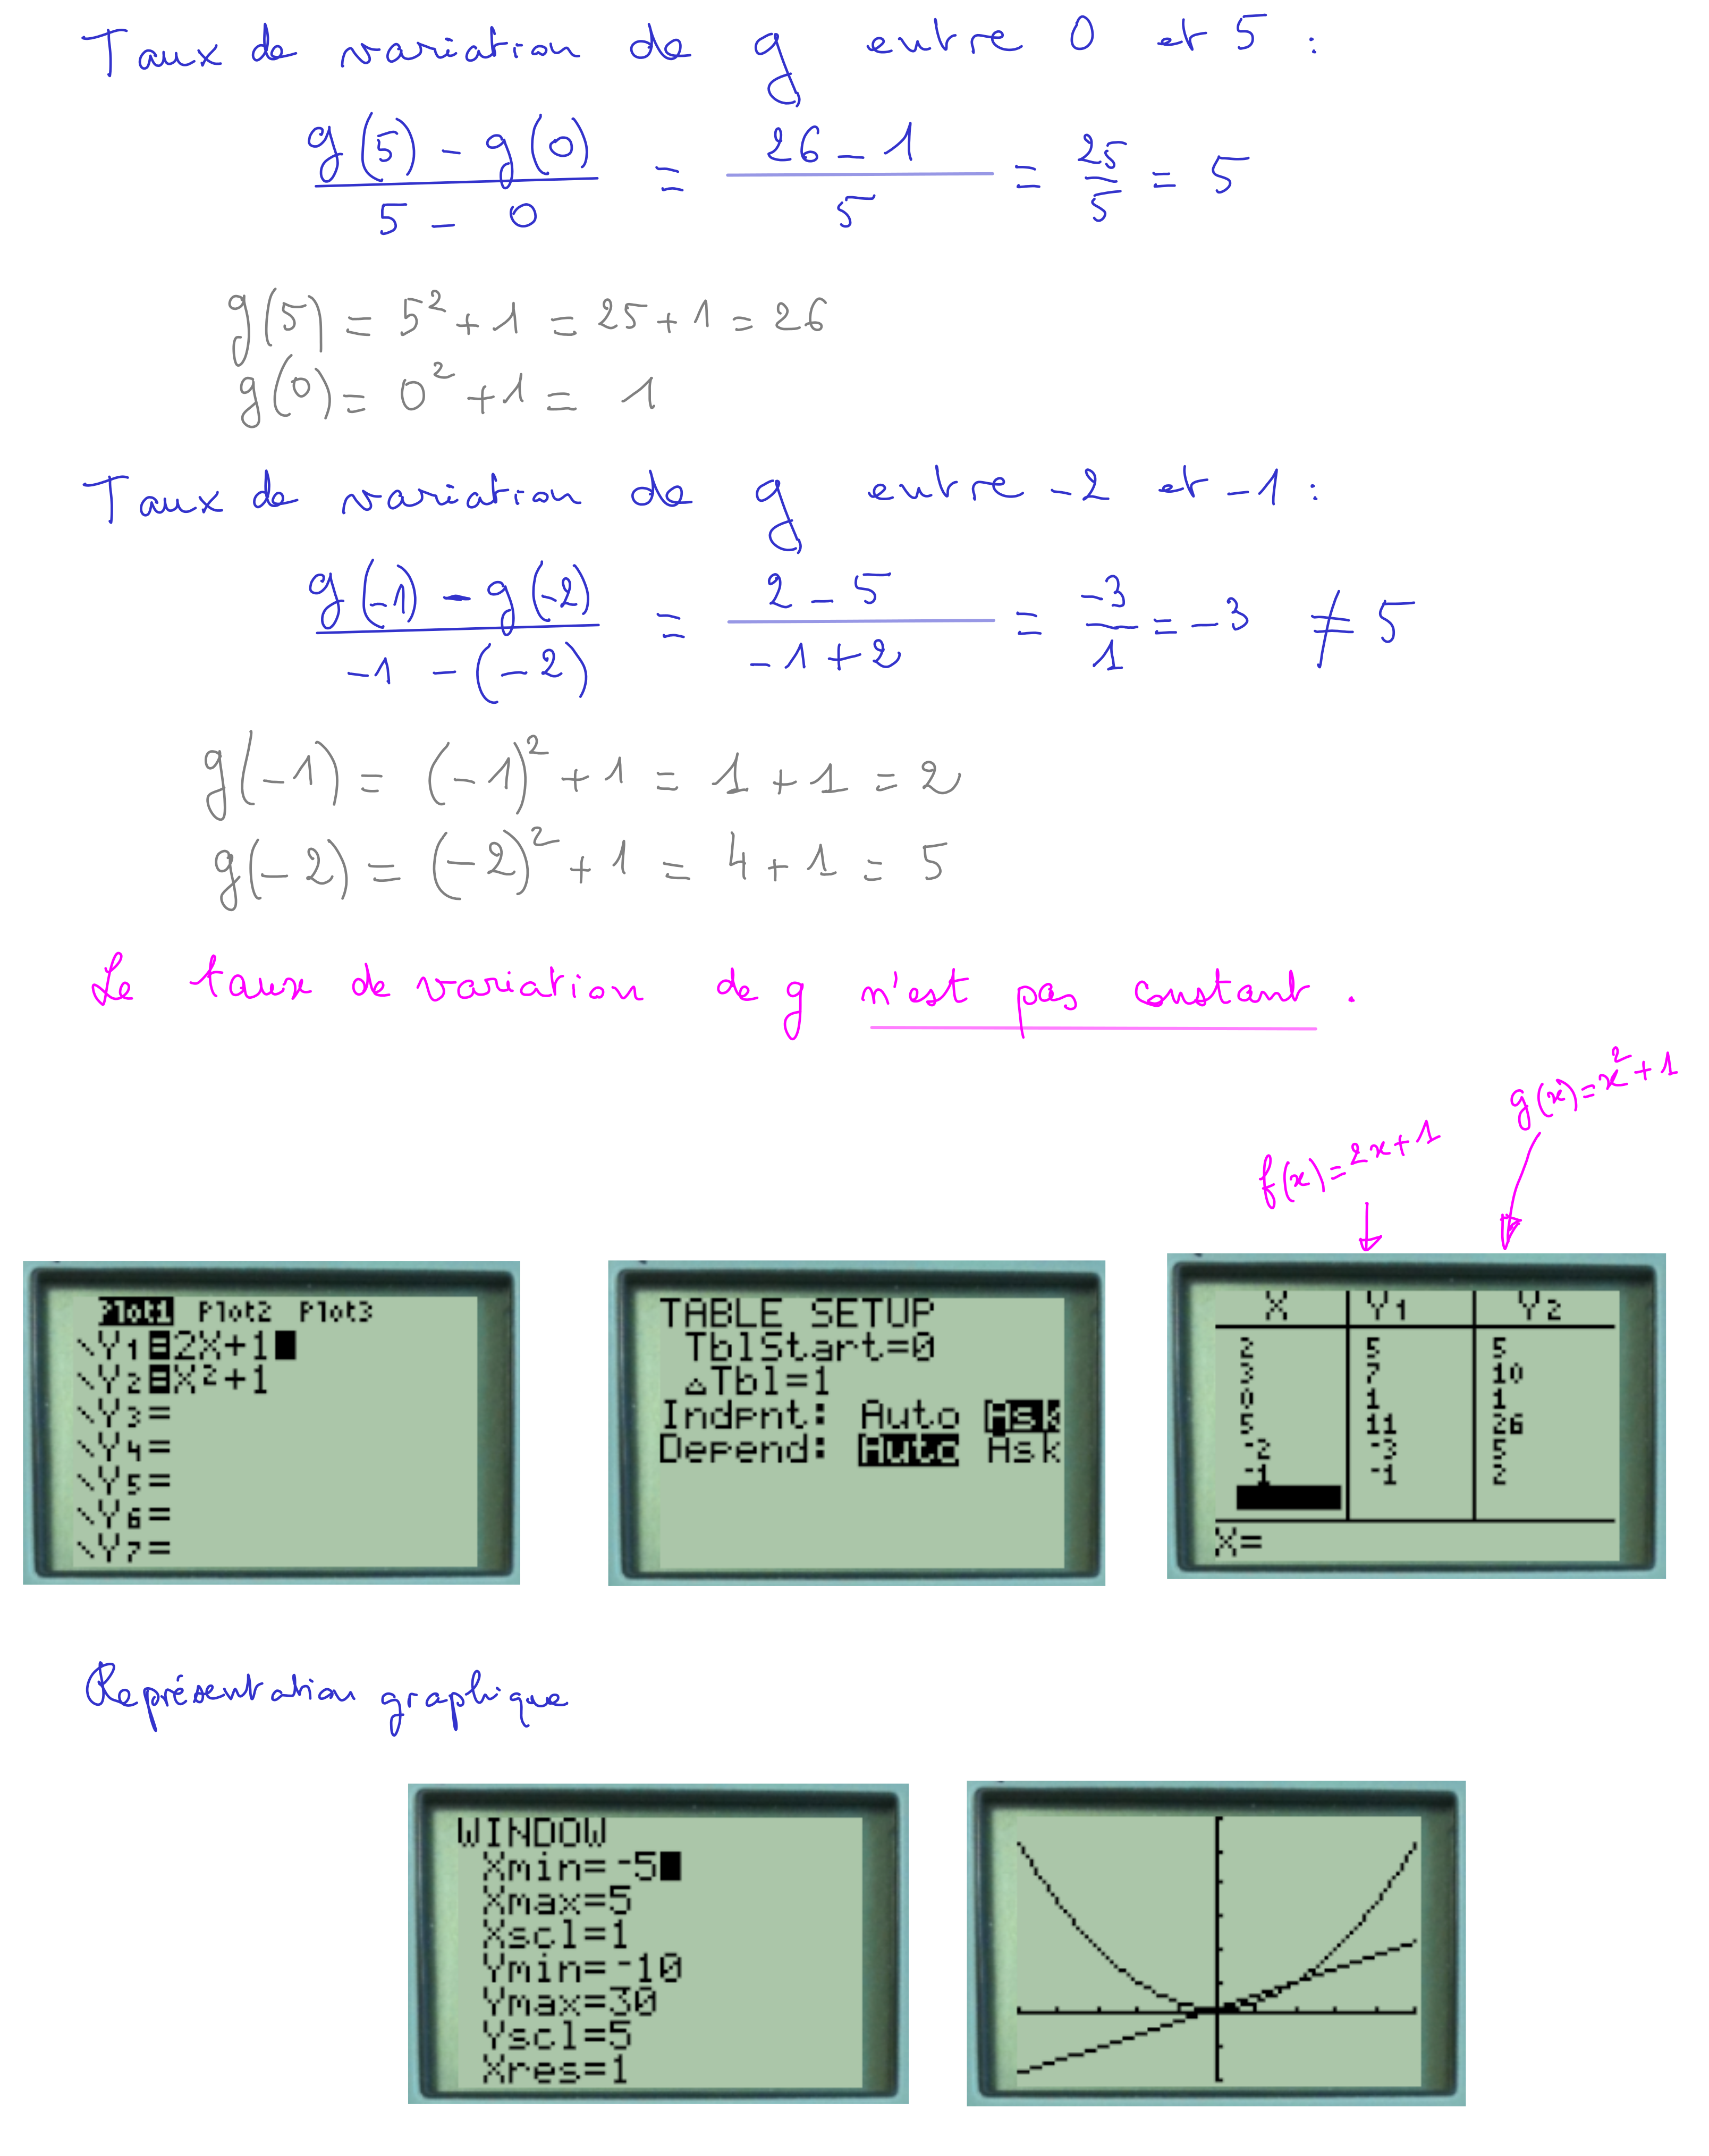 Taux de variation de g entre 0 et 5 :
g(5) - g(0) / 5 - 0 = 26 - 1 / 5 = 25/5 = 5
g(5) = 5² + 1 = 25 + 1 = 26
g(0) = 0² + 1 = 1
Taux de variation de g entre -2 et -1 :
g(-1) - g(-2) / -1 - (-2) = 2 - 5 / -1 + 2 = -3/1 = -3 ≠ 5
g(-1) = (-1)² + 1 = 1 + 1 = 2
g(-2) = (-2)² + 1 = 4 + 1 = 5
Le taux de variation de g n'est pas constant.
f(x) = 2x + 1
g(x) = x² + 1
Plot1 Plot2 Plot3
\Y1=2X+1
\Y2=X²+1
\Y3=
\Y4=
\Y5=
\Y6=
\Y7=
TABLE SETUP
TblStart=0
△Tbl=1
Indpnt: Auto Ask
Depend: Auto Ask
X Y1 Y2
2 5 5
3 7 10
0 1 1
5 11 26
-2 -3 5
-1 -1 2
X=
Représentation graphique
WINDOW
Xmin=-5
Xmax=5
Xscl=1
Ymin=-10
Ymax=30
Yscl=5
Xres=1